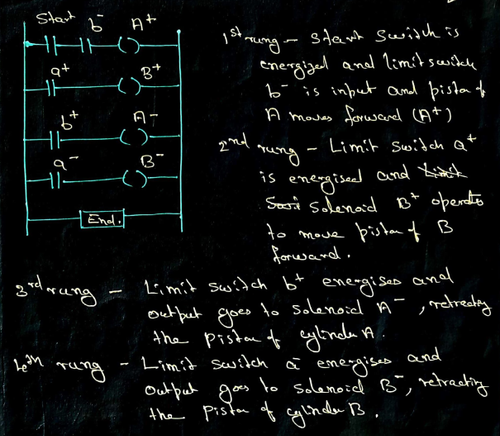 Start b⁻ A⁺
a⁺ B⁺
b⁺ A⁻
a⁻ B⁻
End.
1st rung - Start Switch is
energized and limit switch
b⁻ is input and piston of
A moves forward (A⁺)
2nd rung - Limit switch a⁺
is energised and Limit
Swi Solenoid B⁺ operates
to move piston of B
forward.
3rd rung - Limit switch b⁺ energises and
output goes to solenoid A⁻, retracting
the piston of cylinder A.
4th rung - Limit switch a⁻ energises and
output goes to solenoid B⁻, retracting
the piston of cylinder B.